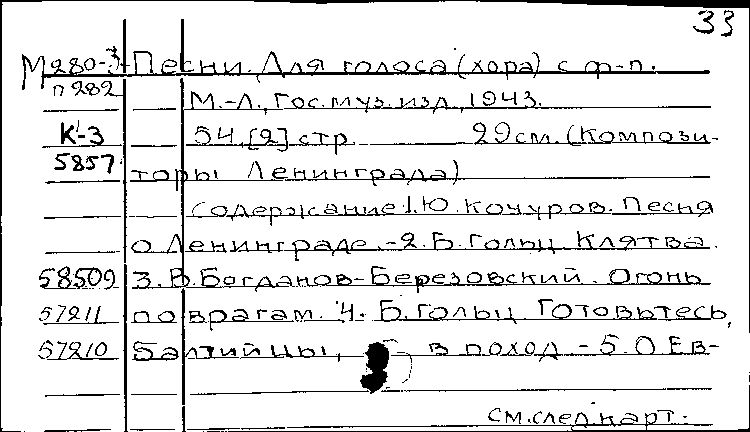 33
М280-3 Песни. Для голоса (хора) с ф-п.
П282 М.-Л., Гос. муз. изд., 1943.
К-3 54, [2] стр. 29 см. (Компози-
5857 торы Ленинграда)
Содержание: 1. Ю. Кочуров. Песня
о Ленинграде. - 2. Б. Гольц. Клятва.
58509 3. В. Богданов-Березовский. Огонь
57211 по врагам. 4. Б. Гольц. Готовьтесь,
57210 Балтийцы, в поход - 5. О. Ев-
см. след. карт.